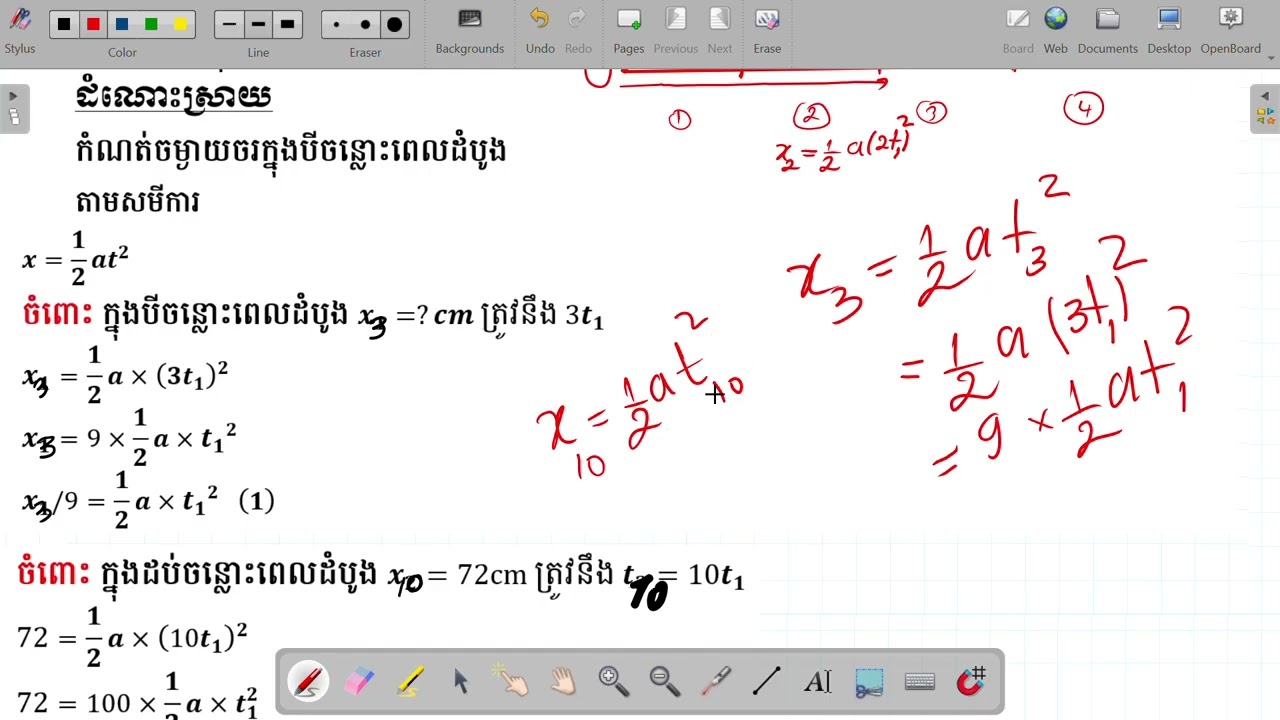 Stylus
Color
Line
Eraser
Backgrounds
Undo
Redo
Pages
Previous
Next
Erase
Board
Web
Documents
Desktop
OpenBoard
ដំណោះស្រាយ
កំណត់ចម្ងាយចរក្នុងបីចន្លោះពេលដំបូង
តាមសមីការ
x = 1/2 at²
ចំពោះ ក្នុងបីចន្លោះពេលដំបូង x₃ =? cm ត្រូវនឹង 3t₁
x₃ = 1/2 a × (3t₁)²
x₃ = 9 × 1/2 a × t₁²
x₃/9 = 1/2 a × t₁² (1)
ចំពោះ ក្នុងដប់ចន្លោះពេលដំបូង x₁₀ = 72cm ត្រូវនឹង t₁₀ = 10t₁
72 = 1/2 a × (10t₁)²
72 = 100 × 1/2 a × t₁²
① ② ③ ④
x₂ = 1/2 a(2t₁)²
x₃ = 1/2 at₃²
= 1/2 a (3t₁)²
= 9 × 1/2 at₁²
x₁₀ = 1/2 at₁₀²
AI